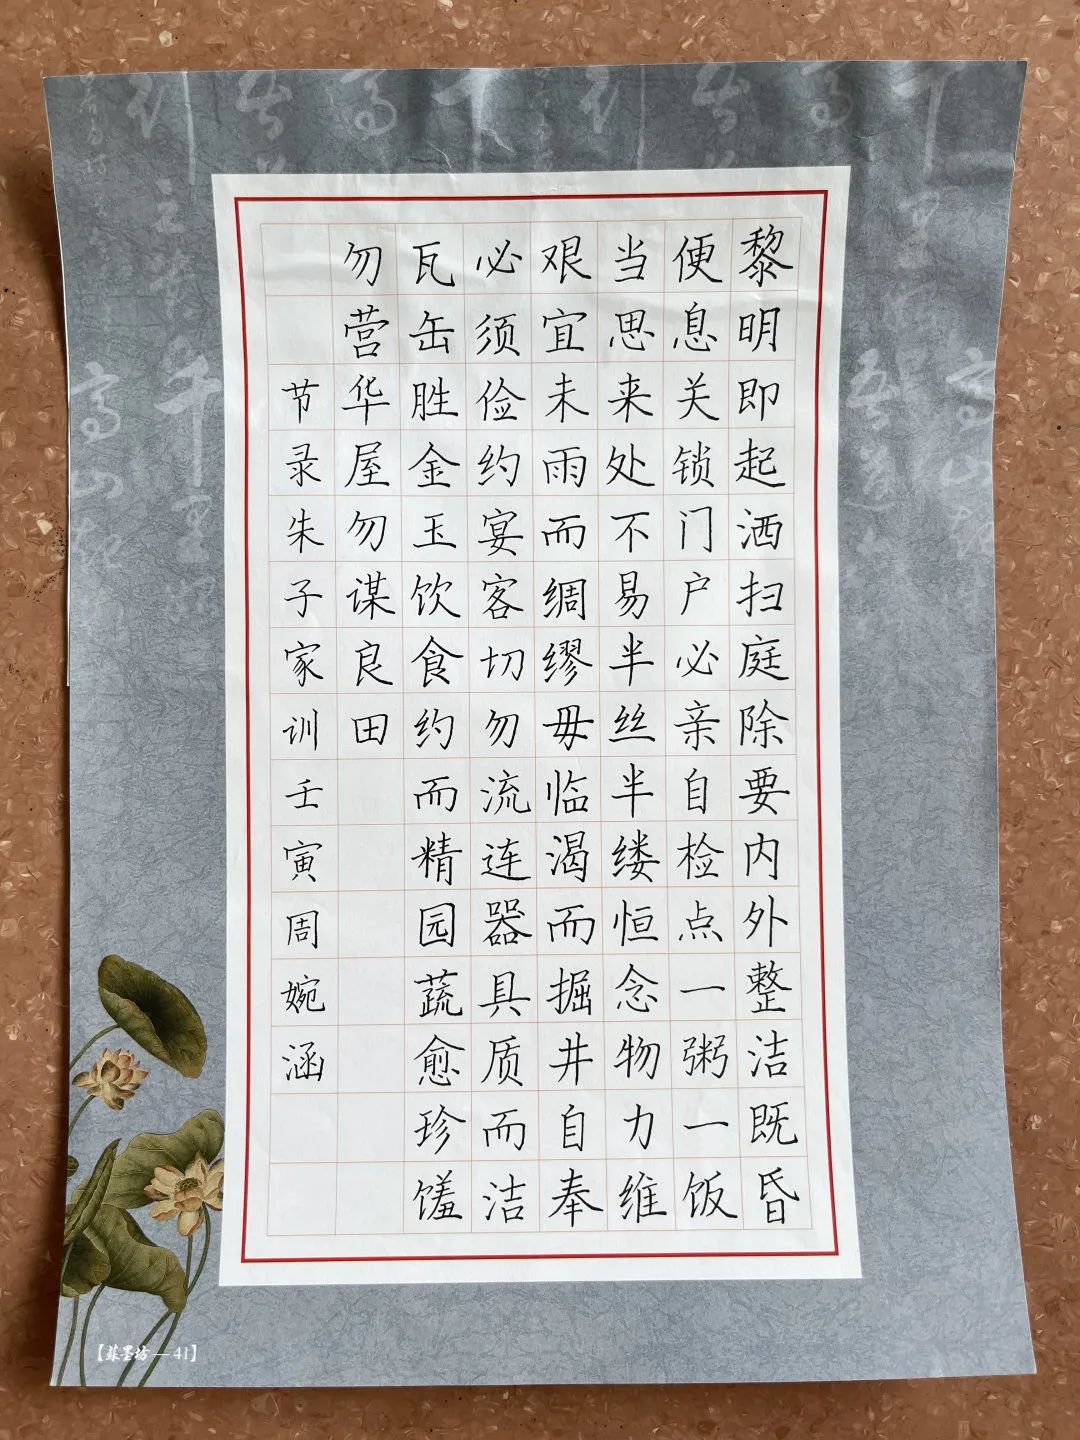 黎明即起洒扫庭除要内外整洁既昏
便息关锁门户必亲自检点一粥一饭
当思来处不易半丝半缕恒念物力维
艰宜未雨而绸缪毋临渴而掘井自奉
必须俭约宴客切勿流连器具质而洁
瓦缶胜金玉饮食约而精园蔬愈珍馐
勿营华屋勿谋良田
节录朱子家训壬寅周婉涵
【蘇墨坊—41】